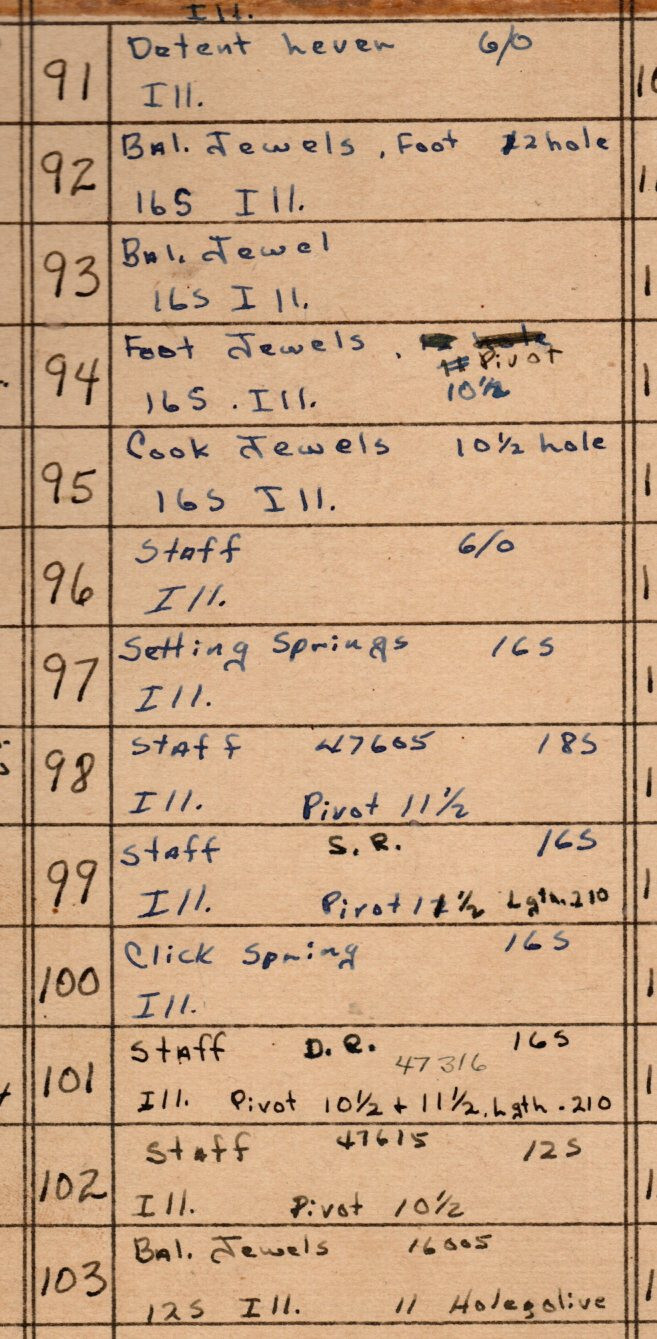 Ill.
91 Detent Lever 6/0
Ill.
92 Bal. Jewels, Foot 12 hole
16S Ill.
93 Bal. Jewel
16S Ill.
94 Foot Jewels. hole
# Pivot
16S. Ill. 10 1/2
95 Cook Jewels 10 1/2 hole
16S Ill.
96 Staff 6/0
Ill.
97 Setting Springs 16S
Ill.
98 Staff 47605 18S
Ill. Pivot 11 1/2
99 Staff S.R. 16S
Ill. Pivot 11 1/2 Lgth.210
100 Click Spring 16S
Ill.
101 Staff D.R. 16S
47316
Ill. Pivot 10 1/2 + 11 1/2, Lgth .210
102 Staff 47615 12S
Ill. Pivot 10 1/2
103 Bal. Jewels 16005
12S Ill. 11 Hole olive